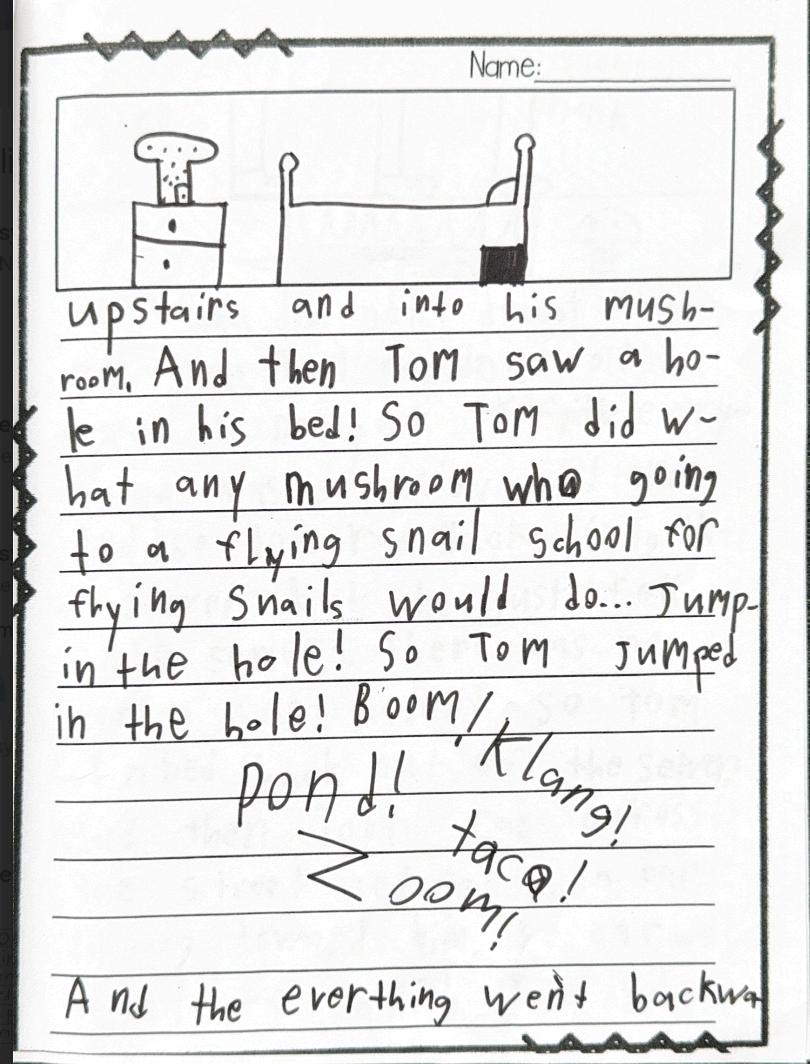 Name:
upstairs and into his mush-
room. And then Tom saw a ho-
le in his bed! So Tom did w-
hat any mushroom who going
to a flying snail school for
flying snails would do... Jump-
in the hole! So Tom Jumped
in the hole! Boom!
Klang!
pond!
taco!
Zoom!
And the everthing went backwa